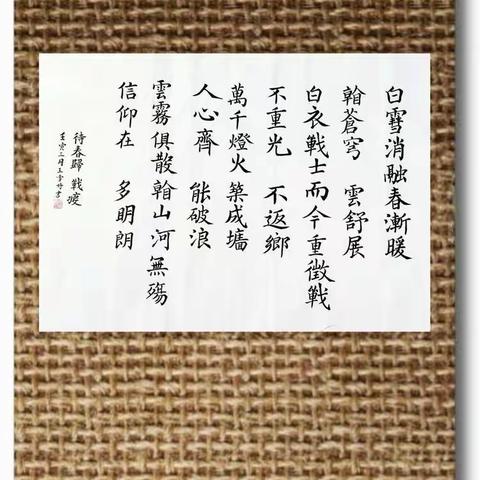 白雪消融春漸暖
翰蒼穹 雲舒展
白衣戰士而今重徵戰
不重光 不返鄉
萬千燈火築成墻
人心齊 能破浪
雲霧俱散翰山河無殤
信仰在 多明朗
待春歸 戰疫
壬寅三月王雪竹書